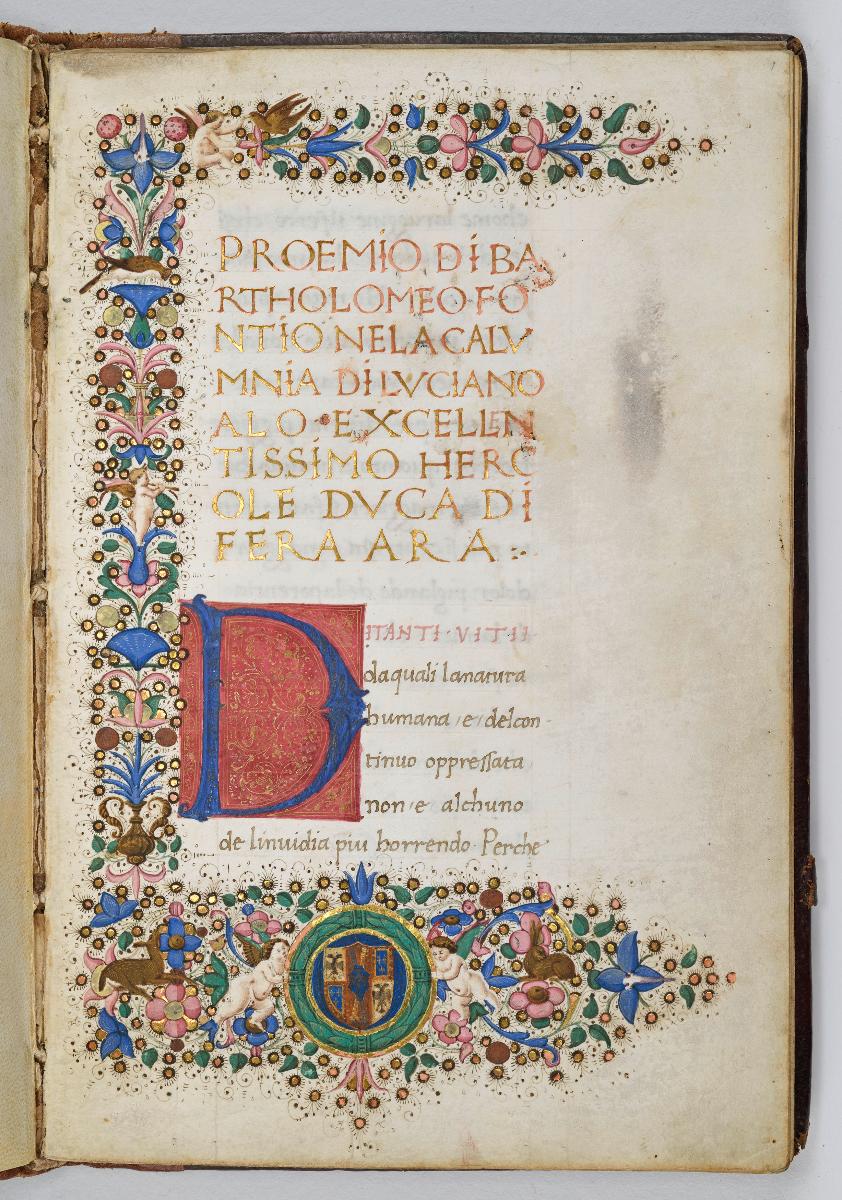 PROEMIO DI BA
RTHOLOMEO FO
NTIO NE LA CALV
MNIA DI LVCIANO
A LO EXCELLEN
TISSIMO HERC
OLE DVCA DI
FERA ARA :.
D
ITANTI VITII
da quali la natura
humana e del con-
tinuo oppressata
non e alchuno
de linuidia piu horrendo Perche